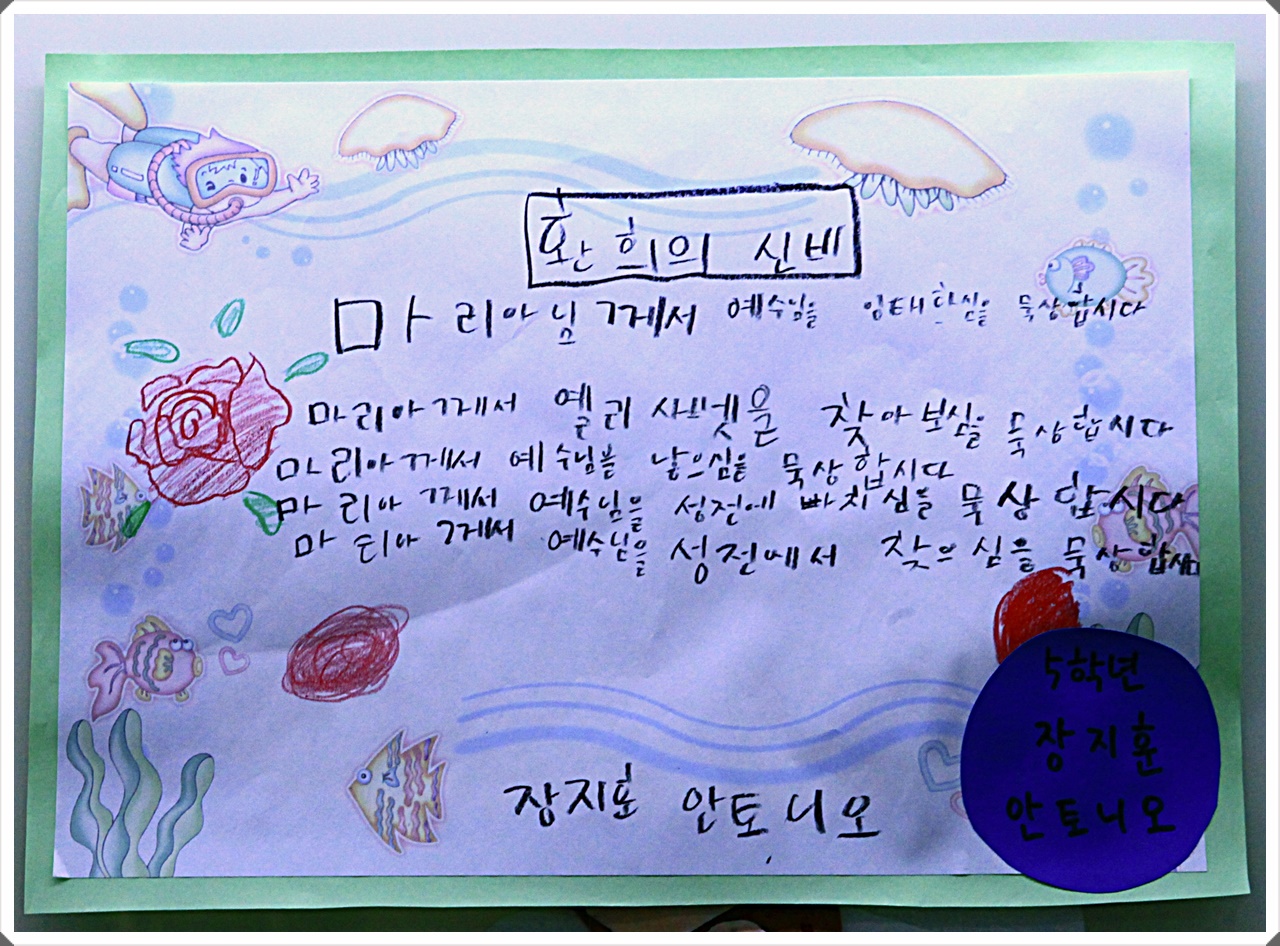 환희의 신비
마리아님께서 예수님을 잉태하심을 묵상합시다
마리아께서 엘리사벳을 찾아보심을 묵상합시다
마리아께서 예수님을 낳으심을 묵상합시다
마리아께서 예수님을 성전에 빠치심을 묵상합시다
마리아께서 예수님을 성전에서 찾으심을 묵상합시다
장지훈 안토니오
5학년
장지훈
안토니오